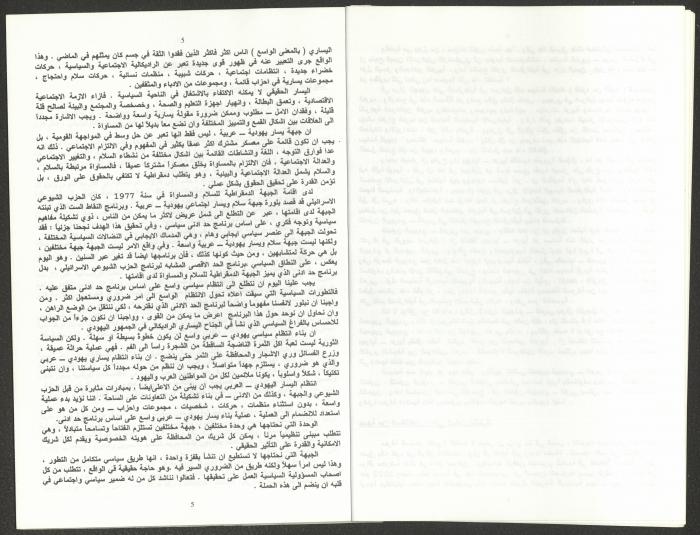 5
اليساري ( بالمعنى الواسع ) اناس اكثر فاكثر الذين فقدوا الثقة في جسم كان يمثلهم في الماضي . وهذا
الواقع جرى التعبير عنه في ظهور قوى جديدة تعبر عن الراديكالية الاجتماعية والسياسية ، حركات
خضراء جديدة ، انتظامات اجتماعية ، حركات شبيبة ، منظمات نسائية ، حركات سلام واحتجاج ،
مجموعات يسارية في احزاب قائمة ، ومجموعات من الادباء والمثقفين .
اليسار الحقيقي لا يمكنه الاكتفاء بالاشتغال في الناحية السياسية . فازاء الازمة الاجتماعية
الاقتصادية ، وتعمق البطالة ، وانهيار اجهزة التعليم والصحة ، وخصخصة والمجتمع والبيئة لصالح قلة
قليلة ، وفقدان الامل – مطلوب وممكن ضرورة مقولة يسارية واسعة وواضحة . ويجب الاشارة مجددا
الى العلاقات بين اشكال القمع والتمييز المختلفة وان نضع معا بديلا لها من المساواة .
ان جبهة يسار يهودية – عربية ، ليس فقط انها تعبر عن حل وسط في المواجهة القومية ، بل
يجب ان تكون قائمة على معسكر مشترك اكثر عمقا بكثير في المفهوم وفي الالتزام الاجتماعي . ذلك انه
عدا فوارق التوجه ، اللغة والنشاطات القائمة بين اشكال مختلفة من نشطاء السلام ، والتغيير الاجتماعي
والعدالة الاجتماعية ، فان الالتزام بالمساواة يخلق معسكراً مشتركاً عميقا ، فالمساواة مرتبطة بالسلام ،
والسلام يشمل العدالة الاجتماعية والبيئية ، وهو يتطلب دمقراطية لا تكتفي بالحقوق على الورق ، بل
تؤمن القدرة على تحقيق الحقوق بشكل عملي .
لدى اقامة الجبهة الدمقراطية للسلام والمساواة في سنة 1977 ، كان الحزب الشيوعي
الاسرائيلي قد قصد بلورة جبهة سلام ويسار اجتماعي يهودية – عربية . وبرنامج النقاط الست الذي تبنته
الجبهة لدى اقامتها ، عبر عن التطلع الى شمل عريض لاكثر ما يمكن من الناس ، ذوي تشكيلة مفاهيم
سياسية وتوجه فكري ، على اساس برنامج حد ادنى سياسي ، وفي تحقيق هذا الهدف نجحنا جزئيا : فقد
تحولت الجبهة الى عنصر سياسي ايجابي وهام ، وهي المدماك الايجابي في النضالات السياسية المختلفة ،
ولكنها ليست جبهة سلام ويسار يهودية – عربية واسعة . وفي واقع الامر ليست الجبهة جبهة مختلفين ،
بل هي حركة لمتشابهين ، ومن حيث كونها كذلك ، فأن برنامجها ايضا قد تغير عبر السنين . وهو اليوم
يعكس ، على النطاق السياسي ،برنامج الحد الاقصى المشابه لبرنامج الحزب الشيوعي الاسرائيلي ، بدل
برنامج حد ادنى الذي يميز الجبهة الدمقراطية للسلام والمساواة لدى اقامتها .
يجب علينا اليوم ان نتطلع الى انتظام سياسي واسع على اساس برنامج حد ادنى متفق عليه .
فالتطورات السياسية التي سيقت اعلاه تحول الانتظام الواسع الى امر ضروري ومستعجل اكثر . ومن
واجبنا ان نبلور لانفسنا مفهوماً واضحاً لبرنامج الحد الادنى الذي نقترحه ، لكي ننتقل من الوضع الراهن ،
وان نحاول ان نوحد حول هذا البرنامج اعرض ما يمكن من القوى ، وواجبنا ان نكون جزءاً من الجواب
للاحساس بالفراغ السياسي الذي نشأ في الجناح اليساري الراديكالي في الجمهور اليهودي .
ان بناء انتظام سياسي يهودي – عربي واسع لن يكون خطوة بسيطة او سهلة . ولكن السياسة
الثورية ليست لعبة اكل الثمرة الناضجة الساقطة من الشجرة راسا الى الفم . فهي عملية حراثة عميقة ،
وزرع الفسائل وري الاشجار والمحافظة على الثمر حتى ينضج . ان بناء انتظام يساري يهودي – عربي
والذي هو ضروري ، يستلزم جهداً متواصلاً ، ويجب ان ننظم من حوله مجدداً كل سياستنا ، وان نتبنى
تكتيكاً ، شكلاً واسلوباً ، يكونا ملائمين لكل من المواطنين العرب واليهود .
انتظام اليسار اليهودي – العربي يجب ان يبنى من الاعلى ايضاً ، بمبادرات مثابرة من قبل الحزب
الشيوعي والجبهة ، وكذلك من الادنى – في بناء تشكيلة من التعاونات على الساحة . اننا نؤيد بدء عملية
واسعة ، بدون استثناء منظمات ، حركات ، شخصيات ، مجموعات واحزاب – ومن كل من هو على
استعداد للانضمام الى العملية ، عملية بناء يسار يهودي – عربي واسع على اساس برنامج حد ادنى.
الوحدة التي نحتاجها هي وحدة مختلفين ، جبهة مختلفين تستلزم الفتاحاً وتسامحاً متبادلاً ، وهي
تتطلب مبنى تنظيمياً مرنا ، يمكن كل شريك من المحافظة على هويته الخصوصية ويقدم لكل شريك
الامكانية والقدرة على التأثير الحقيقي .
الجبهة التي نحتاجها لا تستطيع ان تنشأ بقفزة واحدة ، انها طريق سياسي متكامل من التطور ،
وهذا ليس امراً سهلاً ولكنه طريق من الضروري السير فيه .وهو حاجة حقيقية في الواقع ، تتطلب من كل
اصحاب المسؤولية السياسية العمل على تحقيقها . فتعالوا نناشد كل من له ضمير سياسي واجتماعي في
قلبه ان ينضم الى هذه الحملة .
5